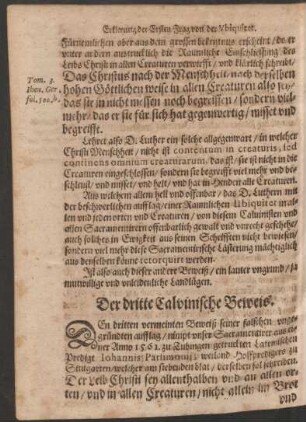 Erklerung der Ersten Frag von der Vbiquitet.
Fürnemlichen aber auß dem grossen bekentnus erscheint / da er
vnter andern austrucklich die Raumliche Einschliessung des
Leibs Christi in allen Creaturen verwirfft / vnd klärlich schreibt /
Das Christus nach der Menschheit nach derselben
Tom. 3.
hohen Göttlichen weise in allen Creaturen also sey /
Ihen. Ger.
das sie in nicht messen noch begreiffen / sondern viel
fol.
mehr / das er sie für sich hat gegenwertig / misset vnd
begreifft.
Lehret also D. Luther ein solche allgegenwart / in welcher
Christi Menschheit / nicht ist contentum in creaturis, sed
continens omnium creaturarum, das ist / sie ist nicht in die
Creaturen eingeschlossen / sondern sie begreifft viel mehr vnd be-
schleust / vnd misset / vnd helt / vnd hat in Händen alle Creaturen.
Auß welchem allem hell vnd offenbar / das D. Luthern mit
der beschwerlichen aufflag / einer Raumlichen Ubiquitet in al-
len vnd jeden orten vnd Creaturen / von diesem Caluinisten vnd
allen Sacramentirern offenbarlich gewalt vnd vnrecht geschehe /
auch solchs in Ewigkeit aus seinen Schrifften nicht bewisen /
sondern viel mehr diese Sacramentierische Lästerung müchtiglich
aus denselben könne retorquirt werden.
Ist also auch dieser ander Beweiß / ein lauter vngrund / ja
mutwillige vnd vorsetzliche Landlügen.
Der dritte Calvinische Beweis.
DEn dritten vermeinten Beweiß seiner falschen vnge-
gründten aufflag / nimpt vnser Sacramentirer auß ei-
ner Anno 1561. zu Tübingen getruckten Lateinischen
Predigt Iohannis Parsimonij, weiland Hoffpredigers zu
Stutgarten / welcher am siebenden blat / der selben sol schreiben.
Der Leib Christi sey allenthalben vnd an allen or-
ten / vnd in allen Creaturen / nicht allein im Brot
vnd